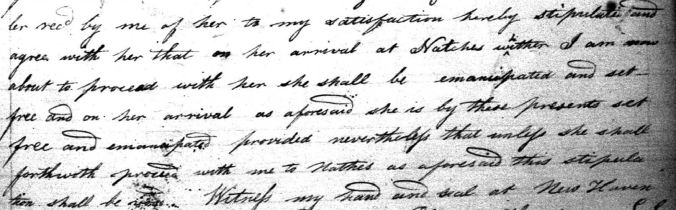 ler recd by me of her to my satisfaction hereby stipulate and
agree with her that on her arrival at Natches wither I am now
about to proceed with her she shall be emancipated and set
free and on her arrival as aforesaid she is by these presents set
free and emancipated provided nevertheless that unless she shall
forthwoth proceed with me to Nathes as aforesaid this stipula
tion shall be void. Witness my hand and seal at New Haven